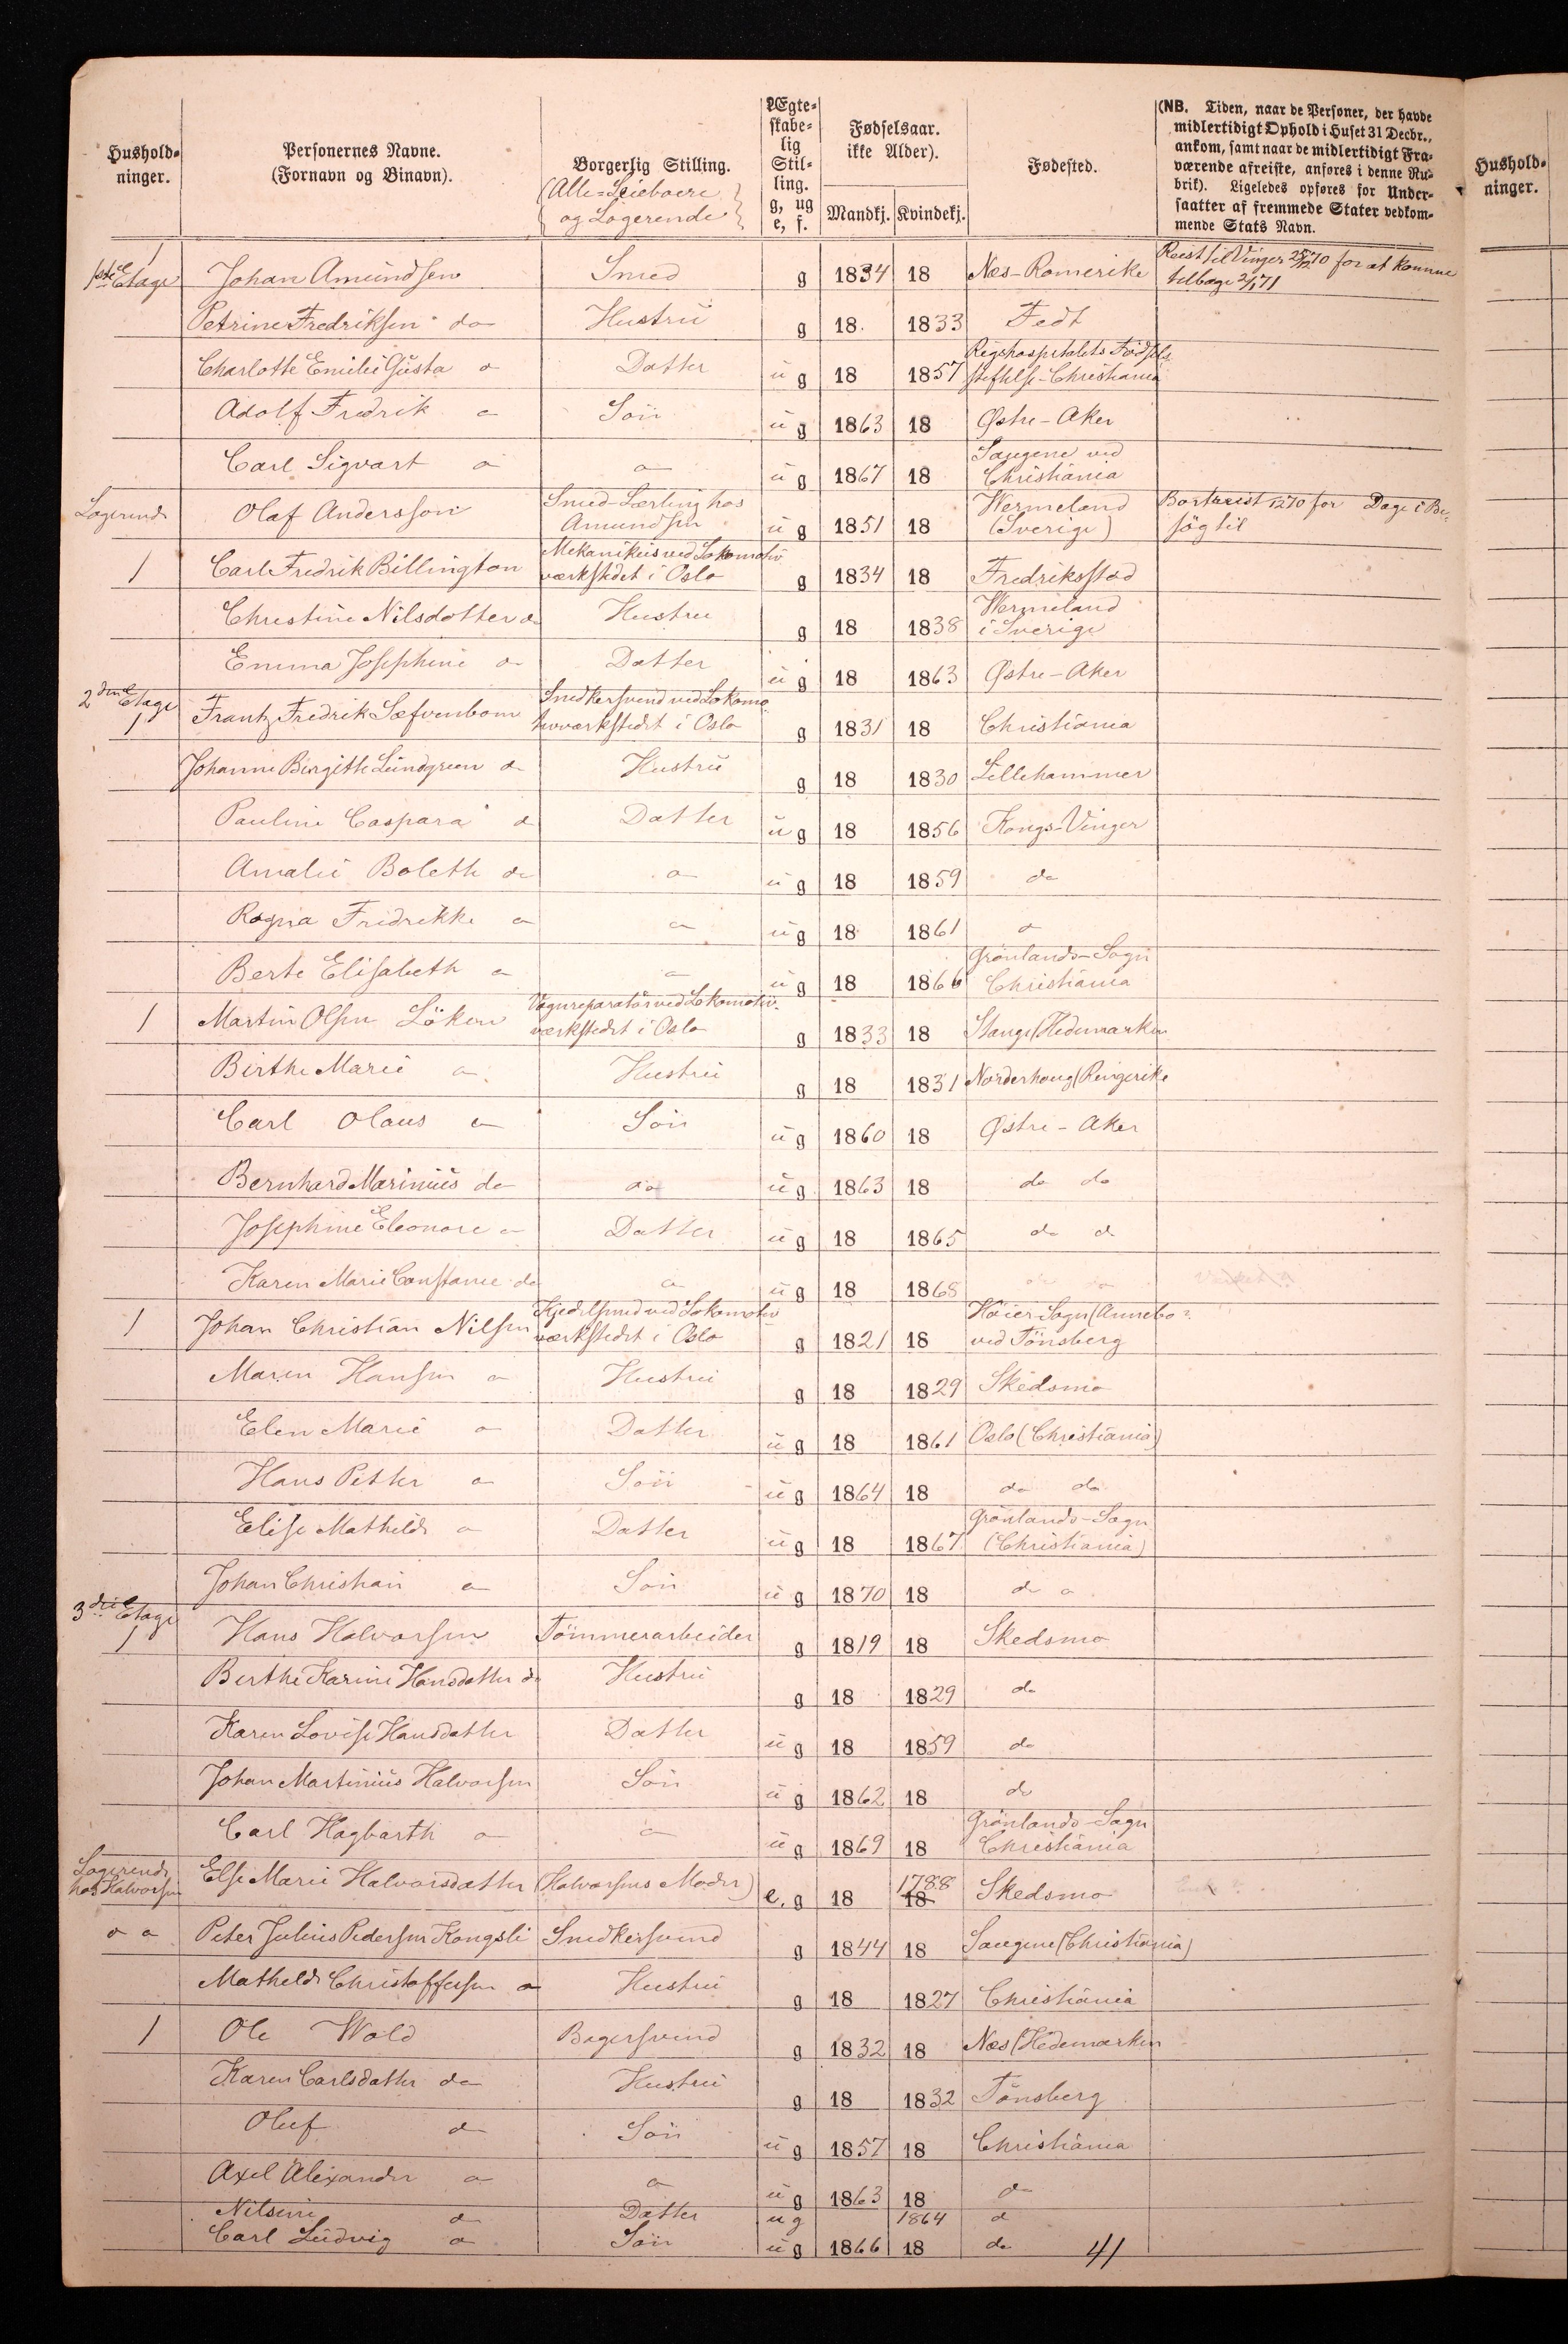 Hushold-
ninger.
Personernes Navne.
(Fornavn og Binavn).
Borgerlig Stilling.
(Alle=Leieboere
og Logerende)
Ægte-
skabe-
lig
Stil-
ling.
g, ug
e, f.
Fødselsaar.
ikke Alder).
Mandkj. Kvindekj.
Fødested.
(NB. Tiden, naar de Personer, der havde
midlertidigt Ophold i Huset 31 Decbr.,
ankom, samt naar de midlertidigt Fra-
værende afreiste, anføres i denne Ru-
brik). Ligeledes opføres for Under-
saatter af fremmede Stater vedkom-
mende Stats Navn.
Hushold-
ninger.
1
1ste Etage Johan Amundsen Smed g 1834 18 Næs-Romerike Reist til Vinger 25/12 70 for at komme
tilbage 2/1 71
Petrine Fredriksen do Hustrü g 18 1833 Fedt
Charlotte Emilie Güsta do Datter üg 18 1857 Rigshospitalets Fødsels
stiftelse-Christiania
Adolf Fredrik do Søn üg 1863 18 Østre-Aker
Carl Sigvart do do üg 1867 18 Saugene ved
Christiania
Logerende Olaf Andersson Smed-Lærling hos
Amundsen üg 1851 18 Wermeland
(Sverige) Bortreist 1270 for Dage i Be-
søg til
1 Carl Fredrik Billington Mekanikus ved Lokomotiv
værkstedet i Oslo g 1834 18 Fredriksstad
Christine Nilsdotter do Hustru g 18 1838 Wermeland
i Sverige
Emma Josephine do Datter üg 18 1863 Østre-Aker
2den Etage
1 Frantz Fredrik Sæfvenbom Snedkersvend ved Lokomo
tivværkstedet i Oslo g 1831 18 Christiania
Johanne Birgitte Lündgreen do Hustrü g 18 1830 Lillehammer
Pauline Caspara do Datter üg 18 1856 Kongs-Vinger
Amalie Boleth do do üg 18 1859 do
Ragna Fredrikke do do üg 18 1861 do
Berte Elisabeth do do üg 18 1866 Grønlands-Sogn
Christiania
1 Martin Olsen Løken Vognreparatør ved Lokomotiv-
værkstedet i Oslo g 1833 18 Stange/Hedemarken
Birthe Marie do Hustrü g 18 1831 Norderhoug/Ringerike
Carl Olaus do Søn üg 1860 18 Østre-Aker
Bernhard Marinius do do üg 1863 18 do do
Josephine Eleonore do Datter üg 18 1865 do do
Karen Marie Constance do do üg 18 1868 do do
1 Johan Christian Nilsen Kjedelsmed ved Lokomotiv
værkstedet i Oslo g 1821 18 Høier Sogn (Annebo?
ved Tønsberg
Maren Hansen do Hustrü g 18 1829 Skedsmo
Elen Marie do Datter üg 18 1861 Oslo (Christiania)
Hans Petter do Søn üg 1864 18 do do
Elise Mathilde do Datter üg 18 1867 Grønlands-Sogn
(Christiania)
Johan Christian do Søn üg 1870 18 do do
3die Etage
1 Hans Halvorsen Tømmerarbeider g 1819 18 Skedsmo
Berthe Karine Hansdatter do Hustrü g 18 1829 do
Karen Lovise Hansdatter Datter üg 18 1859 do
Johan Martinius Halvorsen Søn üg 1862 18 do
Carl Hagbarth do do üg 1869 18 Grønlands-Sogn
Christiania
Logerende
hos Halvorsen Else Marie Halvorsdatter (Halvorsens Moder) e. g 18 1788
18 Skedsmo
do do Peter Julius Pedersen Kongsli Snedkersvend g 1844 18 Saugene (Christiania)
Mathilde Christoffersen do Hustrü g 18 1827 Christiania
1 Ole Wold Bagersvend g 1832 18 Næs (Hedemarken
Karen Carlsdatter do Hustrü g 18 1832 Tønsberg
Oluf do Søn üg 1857 18 Christiania
Axel Alexander do do üg 1863 18 do
Nilsine do Datter ug 1864 do
Carl Lüdvig do Søn üg 1866 18 do 41